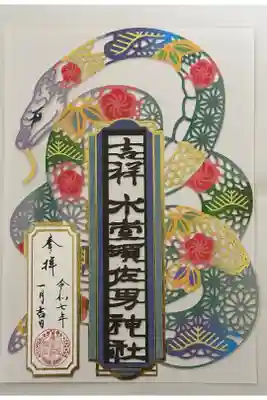 吉祥 水堂須佐男神社
奉拝
令和七年
一月吉日